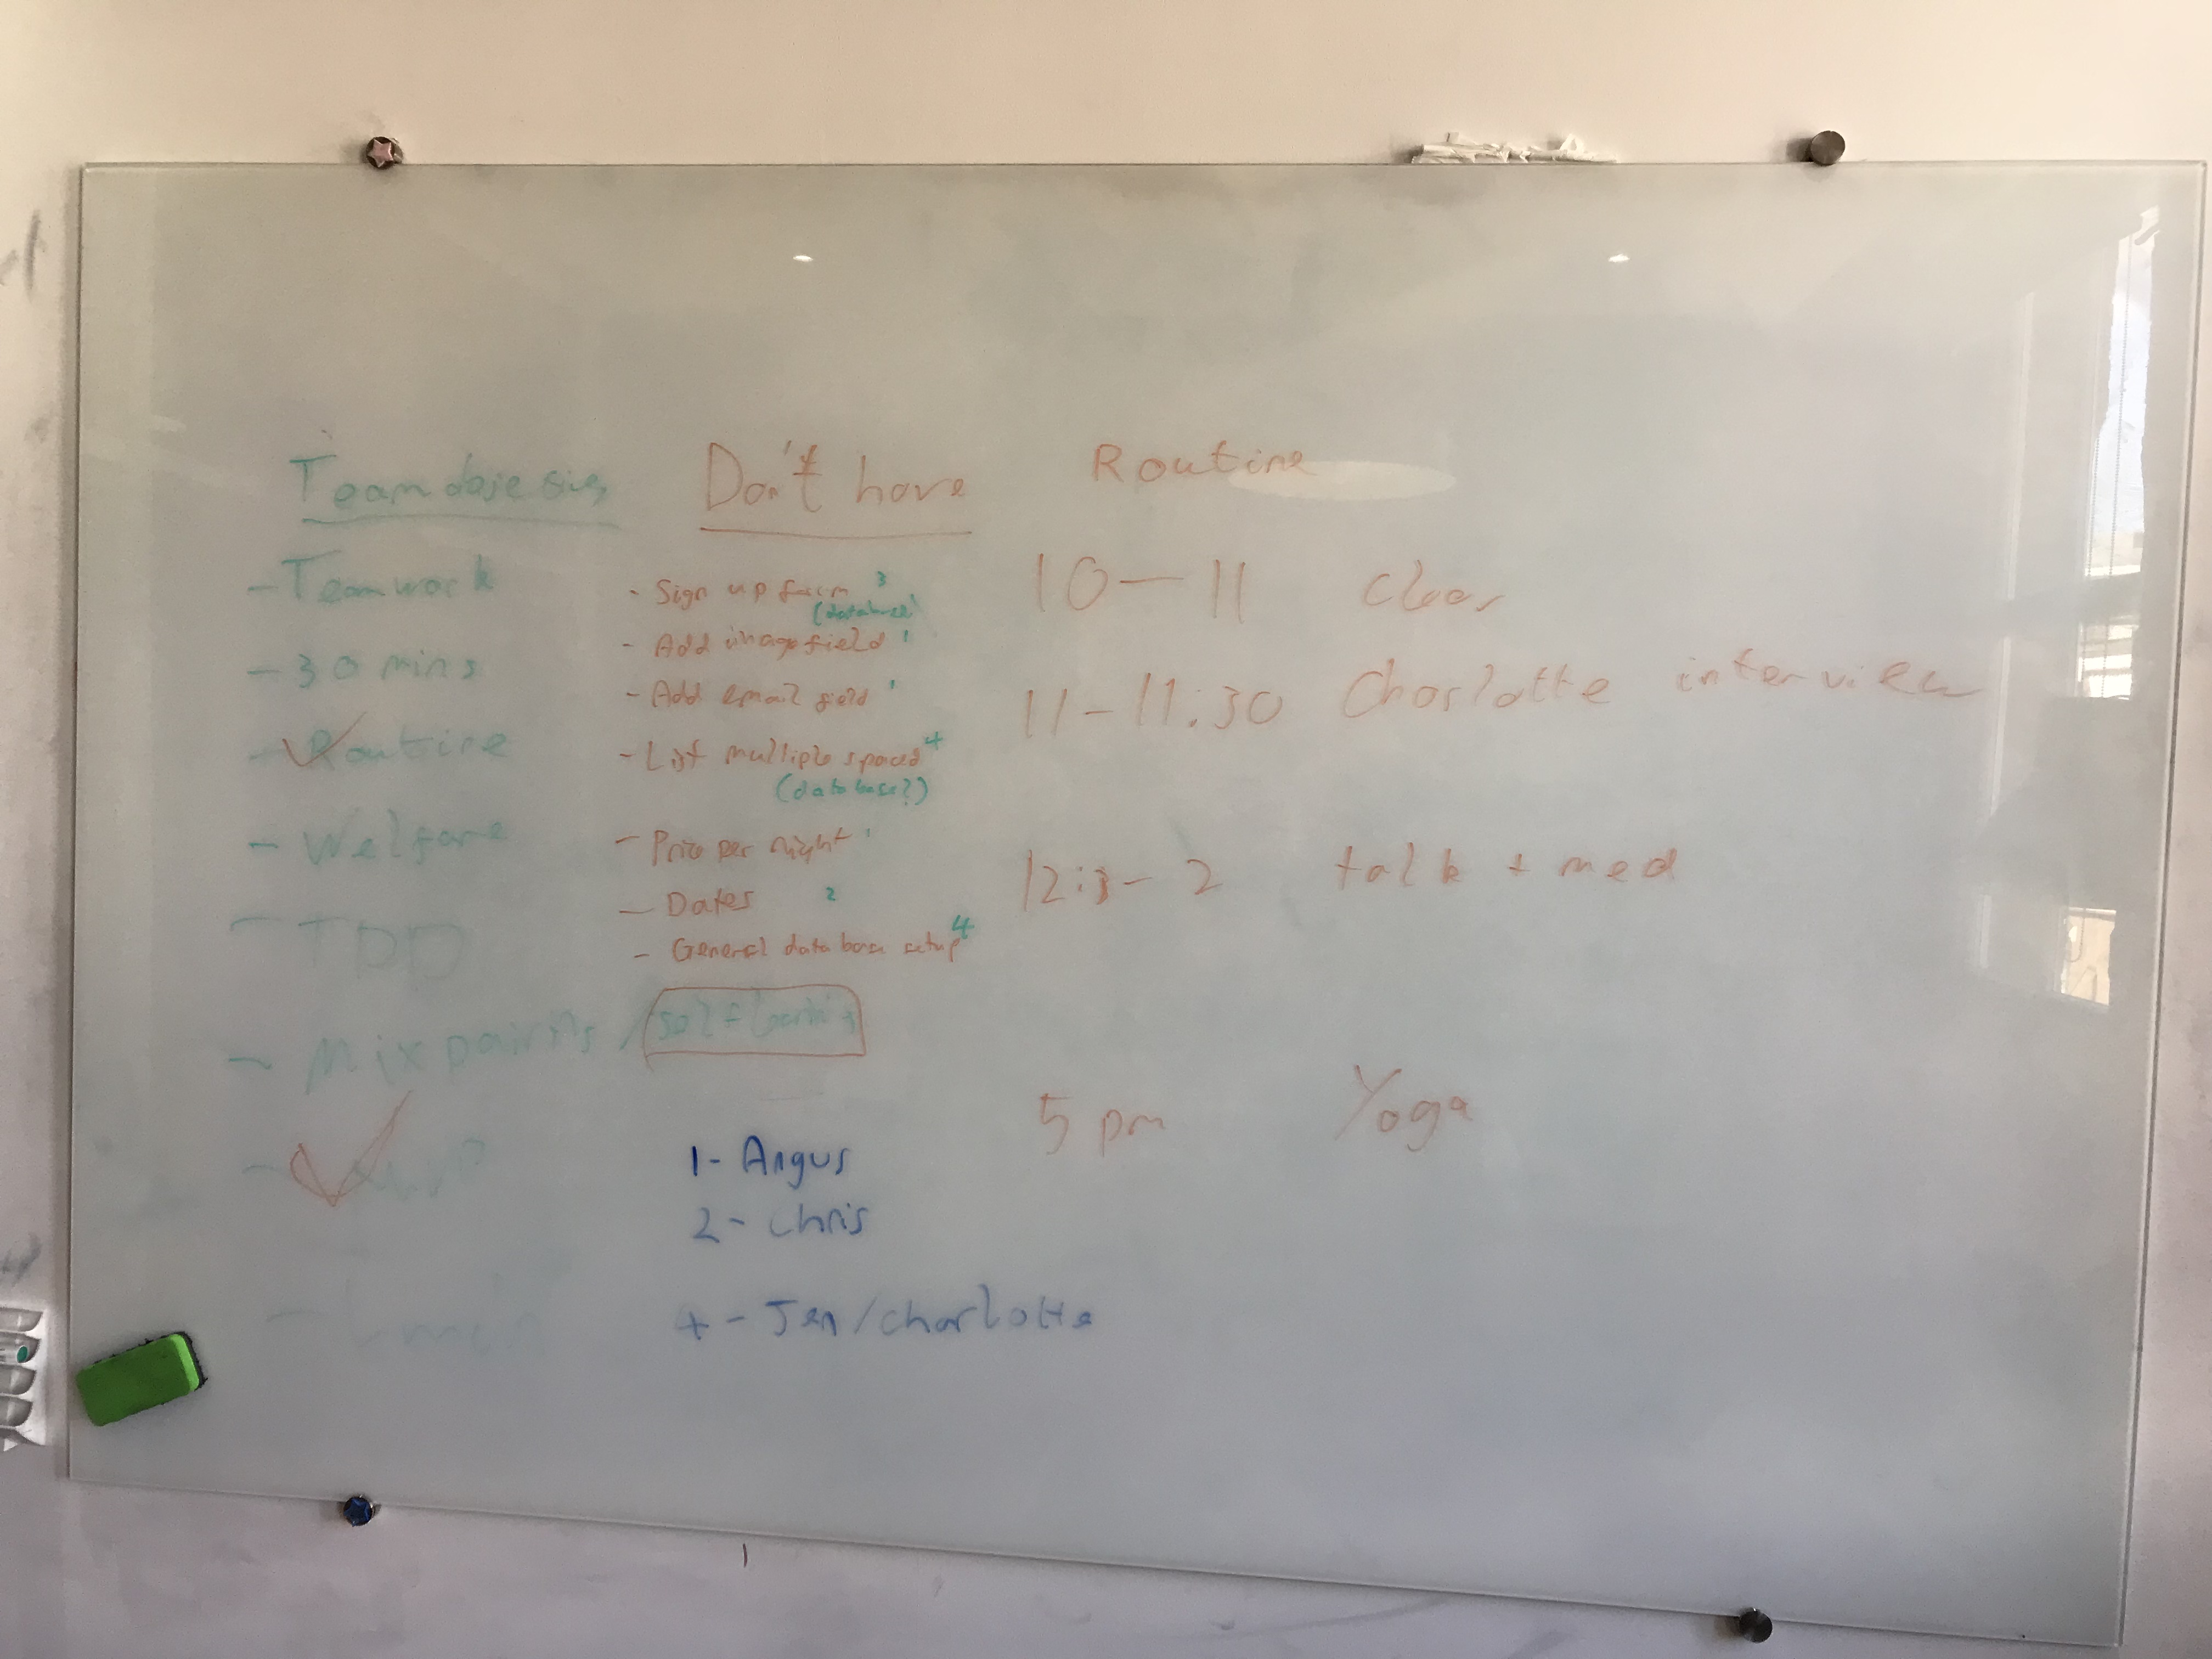 Team
- Teamwork
- 30 mins
- Routine
- Welfare
- TDD
- Mix pairings /
Don't have
- Sign up form 3
(database)
- Add image field 1
- Add email field 1
- List multiple spaces 4
(database?)
- Price per night 1
- Dates 2
- General database setup 4
1 - Angus
2 - Chris
4 - Jen/charlotte
Routine
10 - 11 Clear
11 - 11:30 Charlotte interview
12:3 - 2 talk + med
5 pm Yoga